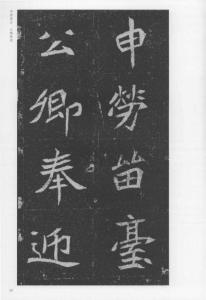 申勞苗臺
公卿奉迎